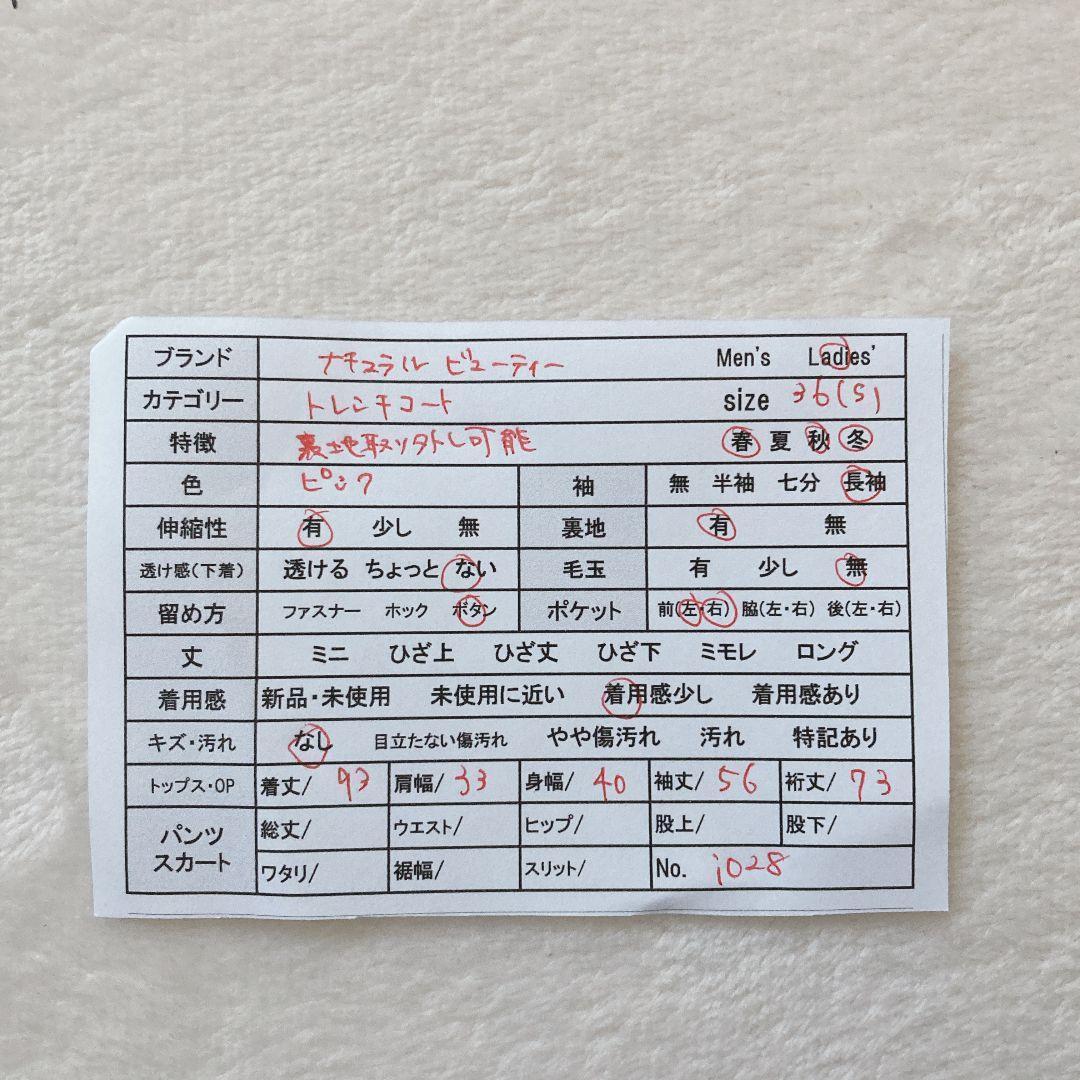 ブランド ナチュラル ビューティー Men's Ladies'
カテゴリー トレンチコート size 36(S)
特徴 裏地取り外し可能 春 夏 秋 冬
色 ピンク 袖 無 半袖 七分 長袖
伸縮性 有 少し 無 裏地 有 無
透け感(下着) 透ける ちょっと ない 毛玉 有 少し 無
留め方 ファスナー ホック ボタン ポケット 前(左・右) 脇(左・右) 後(左・右)
丈 ミニ ひざ上 ひざ丈 ひざ下 ミモレ ロング
着用感 新品・未使用 未使用に近い 着用感少し 着用感あり
キズ・汚れ なし 目立たない傷汚れ やや傷汚れ 汚れ 特記あり
トップス・OP 着丈/ 93 肩幅/ 33 身幅/ 40 袖丈/ 56 裄丈/ 73
パンツ スカート 総丈/ ウエスト/ ヒップ/ 股上/ 股下/
ワタリ/ 裾幅/ スリット/ No. i028